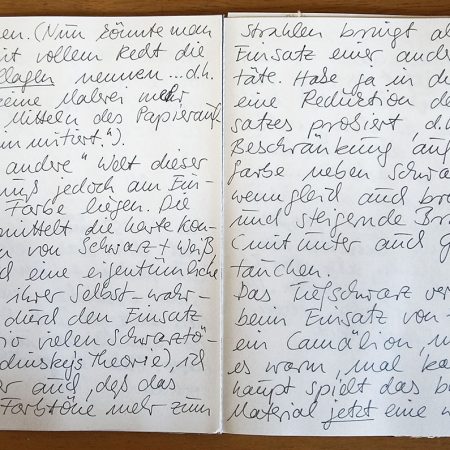 en. (Nun könnte man
it vollem Recht die
llagen nennen ... d.h.
eine Malerei mehr
Mitteln des Papierauf-
imitiert.").
andere" Welt dieser
muß jedoch am Ein-
Farbe liegen. Die
mittelt die harte Kon-
n von Schwarz + Weiß
d eine eigentümliche
ihrer Selbst-wahr-
durch den Einsatz
so vielen Schwarztö-
dinskys Theorie), ich
er auch, daß das
Farbtöne mehr zum
Strahlen bringt al
Einsatz einer ander
täte. Habe ja in d
eine Reduktion de
satzes probiert, d.h.
Beschränkung auf
farbe neben Schwar
wenngleich auch br
und steigernde Br
(mitunter auch G
tauchen.
Das Tiefschwarz ver
beim Einsatz von
ein Camälion, m
es warm, mal ka
haupt spielt das b
Material jetzt eine w